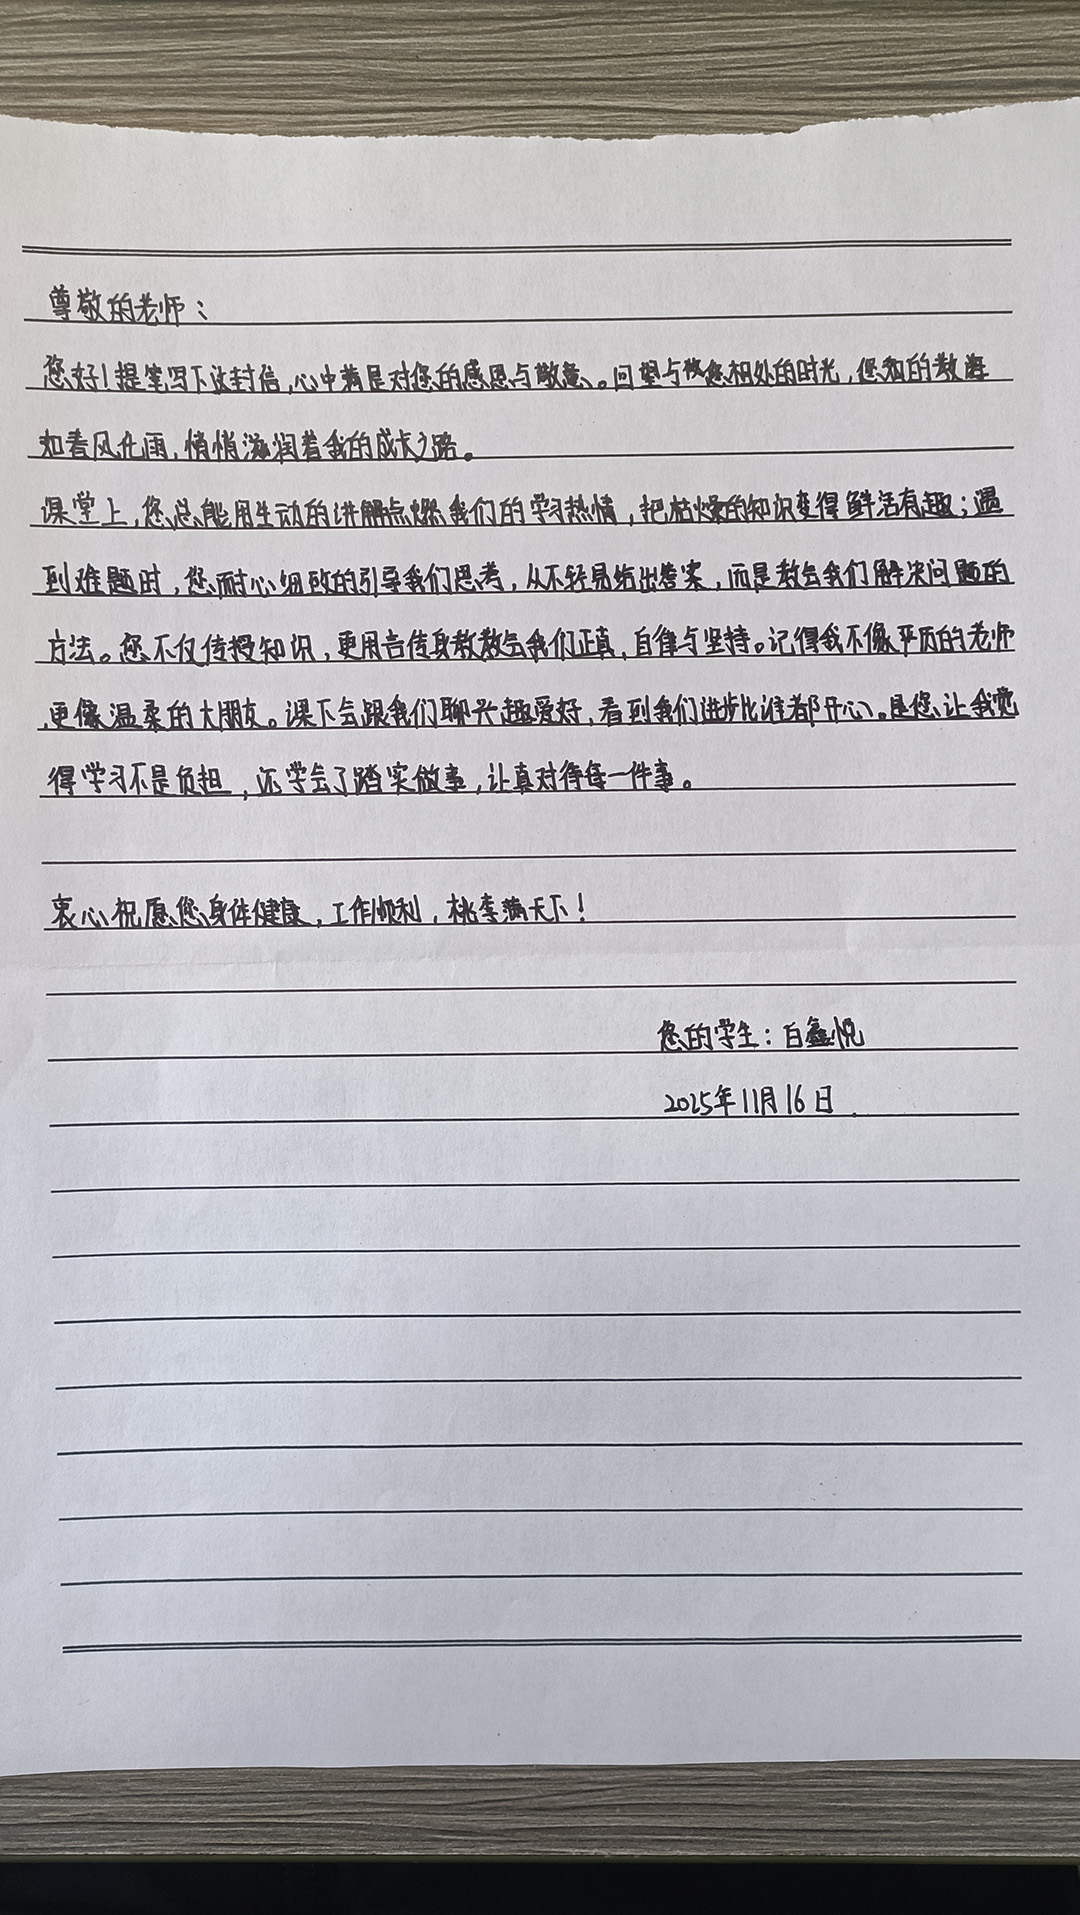 尊敬的老师：
您好！提笔写下这封信，心中满是对您的感恩与敬意。回望与您相处的时光，您的教诲
如春风化雨，悄悄滋润着我的成长之路。
课堂上，您总能用生动的讲解点燃我们的学习热情，把枯燥的知识变得鲜活有趣；遇
到难题时，您耐心细致的引导我们思考，从不轻易给出答案，而是教会我们解决问题的
方法。您不仅传授知识，更用言传身教教会我们正真，自律与坚持。记得我不像平历的老师
，更像温柔的大朋友。课下会跟我们聊兴趣爱好，看到我们进步比谁都开心。是您让我觉
得学习不是负担，还学会了踏实做事，让真对待每一件事。
衷心祝愿您身体健康，工作顺利，桃李满天下！
您的学生：白鑫悦
2025年11月16日